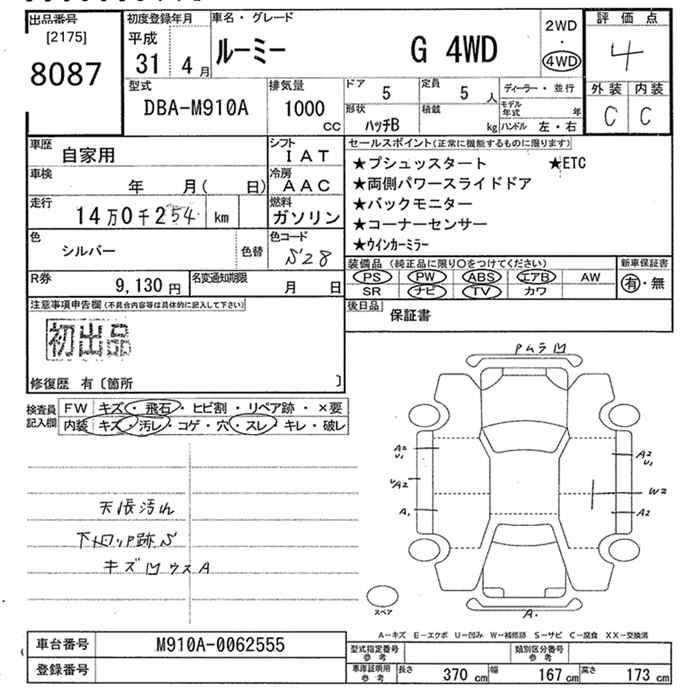 出品番号 [2175] 8087
初度登録年月 平成 31年 4月
車名・グレード ルーミー G 4WD
2WD ・ 4WD
評価点 4
外装 C 内装 C
型式 DBA-M910A
排気量 1000 CC
ドア 5 定員 5 人
形状 ハッチB 積載 kg
ディーラー・並行
モデル年式 年
ハンドル 左・右
車歴 自家用
シフト IAT
車検 年 月( 日)
冷房 AAC
走行 14万0千254 km
燃料 ガソリン
色 シルバー 色替
色コード S28
R券 9,130円
名変通知期限 月 日
セールスポイント(正常に機能するものに限ります)
★プシュッスタート ★ETC
★両側パワースライドドア
★バックモニター
★コーナーセンサー
★ウインカーミラー
装備品(純正品に限り○をつけてください)
PS PW ABS エアB AW
SR ナビ TV カワ
新車保証書 有・無
後日品 保証書
注意事項申告欄(不具合内容等は具体的に記入して下さい)
初出品
修復歴 有〔箇所 〕
検査員記入欄
FW キズ・飛石・ヒビ割・リペア跡・×要
内装 キズ・汚レ・コゲ・穴・スレ・キレ・破レ
天張汚れ
キズ凹ウスA
PムラU
A2 U1
A1
A2 U1
W2
A2
A.
スペア
A-キズ E-エクボ U-凹み W-補修跡 S-サビ C-腐食 XX-交換済
車台番号 M910A-0062555
登録番号
型式指定番号 参考
類別区分番号 参考
車庫証明用 参考 長さ 370 cm 幅 167 cm 高さ 173 cm